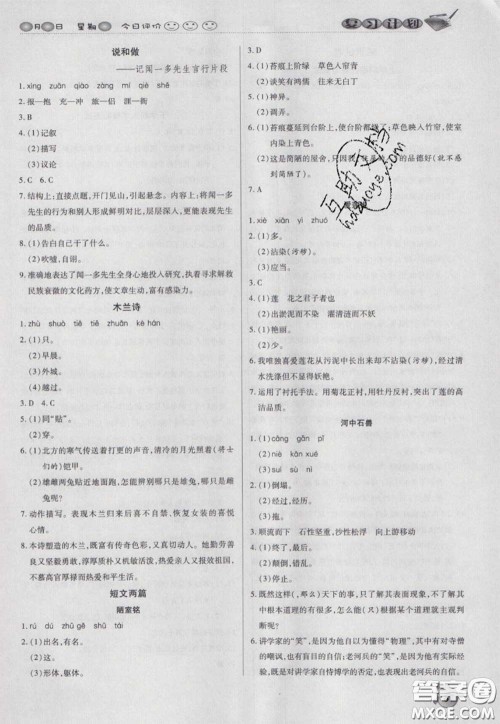 月 日 星期 今日评价
复习计划
说和做
——记闻一多先生言行片段
1. xīng zuān qiāo zāo mì qiè diē
2. 报—抱 充—冲 瘢—
3. B
4. (1)记叙
(2)描写
(3)议论
5. C 6. C
7. 结构上:直接点题,开门见山,引起悬念。内容上:将闻一多
先生的行为和别人形成鲜明对比,层层深入,更能表现先生
的品质。
8. (1)告白自己干了什么。
(2)吹嘘。
9. 准确地表达了闻一多先生全身心地投入研究、执着寻求解救
民族衰微的文化药方,使文章语言生动、富有感染力。
木兰诗
1. zhù shuò tiě tiē zhuān kè hán
2. (1)只。
(2)早晨。
(3)集市。
3. D 4. C
5. (1)同“贴”。
(2)穿。
6. (1)北方的寒气传送着打更的声音,清冷的月光照着(将士
们的)铠甲。
(2)雄雌两兔贴近地面跑,怎能辨别哪只是雄兔,哪只是雌
兔呢?
7. 动作描写。表现木兰归来后亲切、激动、恢复女装的喜悦
心情。
8. 本诗塑造的木兰,既富有传奇色彩,又真切动人。她勤劳善
良又坚毅勇敢,淳厚质朴又机敏活泼,热爱亲人又报效国家,
不慕高官厚禄而热爱和平生活。
短文两篇
陋室铭
1. rú dú zhū gě shū tái
2. (1)出名,有名。
(2)这。
(3)形体、躯体。
3. D
4. (1)苔痕上阶绿 草色入帘青
(2)谈笑有鸿儒 往来无白丁
5. (1)神异。
(2)弄调。
6. (1)苔痕蔓延到台阶上,使台阶都绿了;草色映入竹帘,使室
内染上青色。
(2)这是简陋的屋舍,只因我
的品德好(就不感
到简陋了)。
7. A
1. xiè xiān yì zhuó
2. (1)多。
(2)沾染(污秽)。
(3)亵玩。
3. C
4. (1)莲 花之君子者也
(2)出淤泥而不染 濯清涟而不妖
5. (1)艳丽。
(2)少。
6. 我唯独喜爱莲花从污泥中长出来却不沾染(污秽),经过清
水洗涤但不显得妖艳。
7. 运用了衬托手法。用菊花正衬,用牡丹反衬,突出了莲的高
洁品质。
河中石兽
1. (1)cāng gǎn pǐ
(2)
(3)sù niè
2. (1)倒塌。
(2)经过,经历。
(3)拖。
3. 顺流而下 石性坚重,沙性松浮 向上游移动
4. (1)停止。
(2)主观地推断。
5. 既然这样,(那么)天下的事,只了解其表面现象,不了解其
中根本道理的有很多,怎么能(只)根据(某个)道理就主观
判断呢?
6. 讲学家的“笑”,是因他自以为懂得“物理”,其中有对寺僧
的嘲讽,也有盲目的自信;老河兵的“笑”,是因为他有实际
经验,既是对讲学家自恃博学的否定,也表现了老河兵的自信。
互助文档
hdzuoye.com
答案圈
MXQE.COM